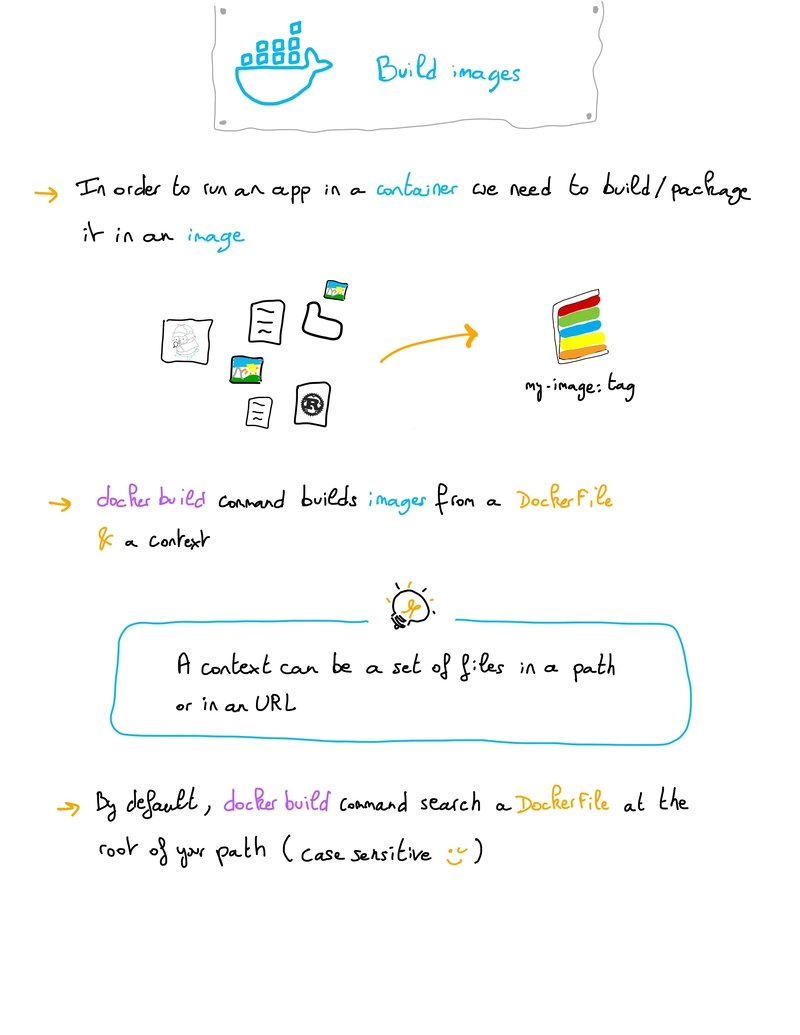 Build images
→ In order to run an app in a container we need to build/package
it in an image
R
my-image:tag
→ docker build command builds images from a DockerFile
& a context
A context can be a set of files in a path
or in an URL
→ By default, docker build command search a DockerFile at the
root of your path (case sensitive)